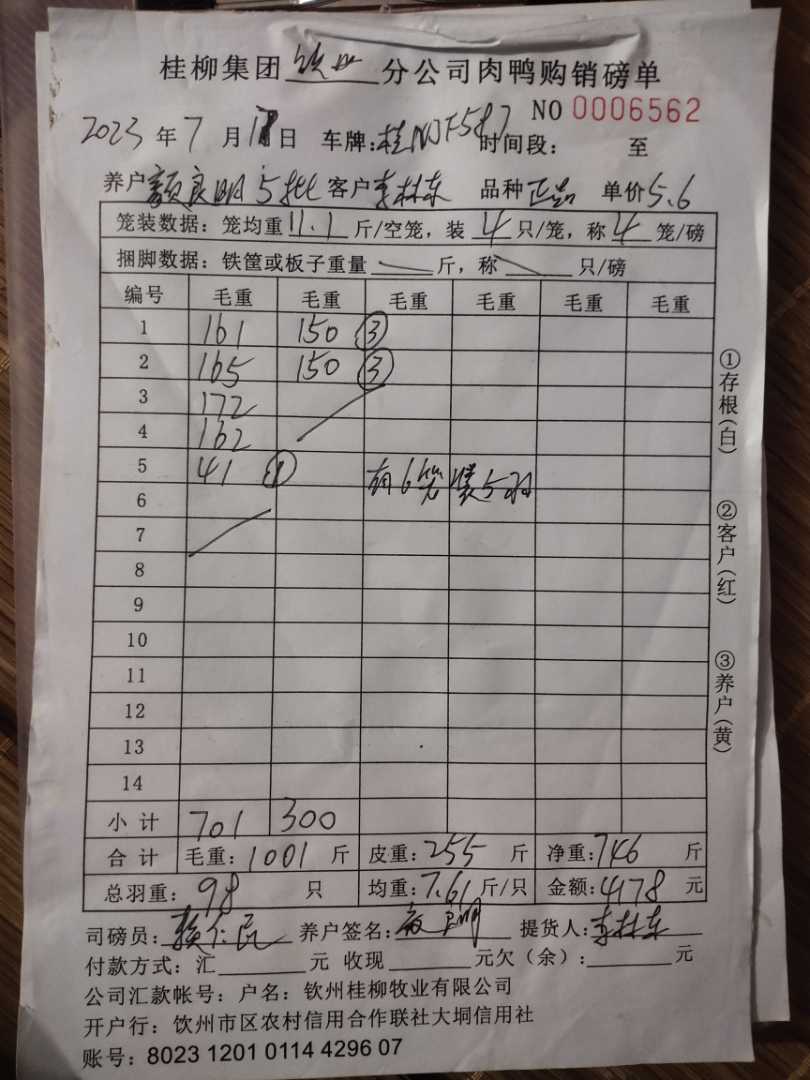 桂柳集团 钦州 分公司肉鸭购销磅单
NO 0006562
2023 年 7 月 17 日 车牌:桂 时间段: 至
养户 颜良明 5批 客户 李林东 品种 正品 单价 5.6
笼装数据: 笼均重 11.1 斤/空笼, 装 4 只/笼, 称 4 笼/磅
捆脚数据: 铁筐或板子重量 斤, 称 只/磅
编号 毛重 毛重 毛重 毛重 毛重 毛重
1 161 150 ③
2 165 150 ③
3 172
4 162
5 41 ① 有6笼 装5羽
6
7
8
9
10
11
12
13
14
小计 701 300
合计 毛重: 1001 斤 皮重: 255 斤 净重: 746 斤
总羽重: 98 只 均重: 7.61 斤/只 金额: 4178 元
司磅员: 赖仁良 养户签名: 提货人: 李林东
付款方式: 汇 元 收现 元欠(余): 元
公司汇款帐号: 户名: 钦州桂柳牧业有限公司
开户行: 钦州市区农村信用合作联社大垌信用社
账号: 8023 1201 0114 4296 07
①存根(白)
②客户(红)
③养户(黄)